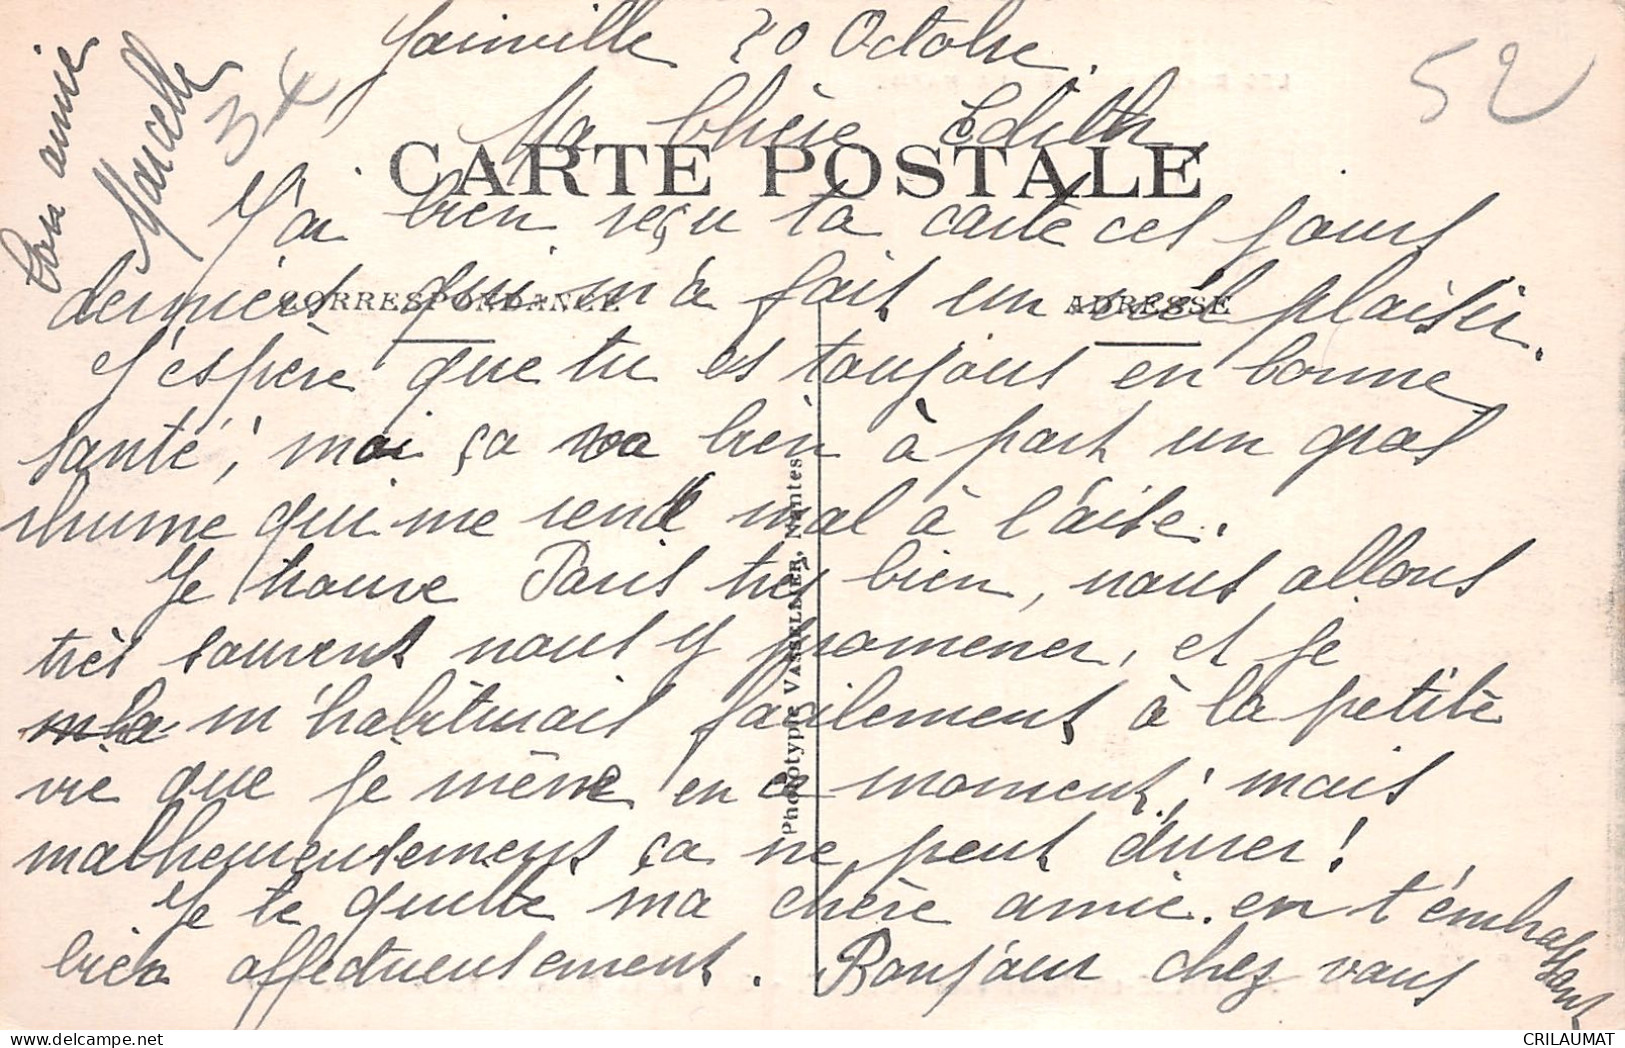 Joinville 20 Octobre.
Ma Chère Edith
CARTE POSTALE
J'ai bien reçu ta carte ces jours
CORRESPONDANCE
ADRESSE
derniers qui m'a fait un réel plaisir.
J'espère que tu es toujours en bonne
santé ; moi ça va bien à part un gros
rhume qui me rend mal à l'aise.
Je trouve Paris très bien, nous allons
très souvent nous y promener, et je
m'habituais facilement à la petite
vie que je mène en ce moment ; mais
malheureusement ça ne peut durer !
Je te quitte ma chère amie en t'embrassant
bien affectueusement. Bonjour chez vous
Ton amie
Marcelle
34
52
Phototypie VASSELLIER, Nantes
CRILAUMAT